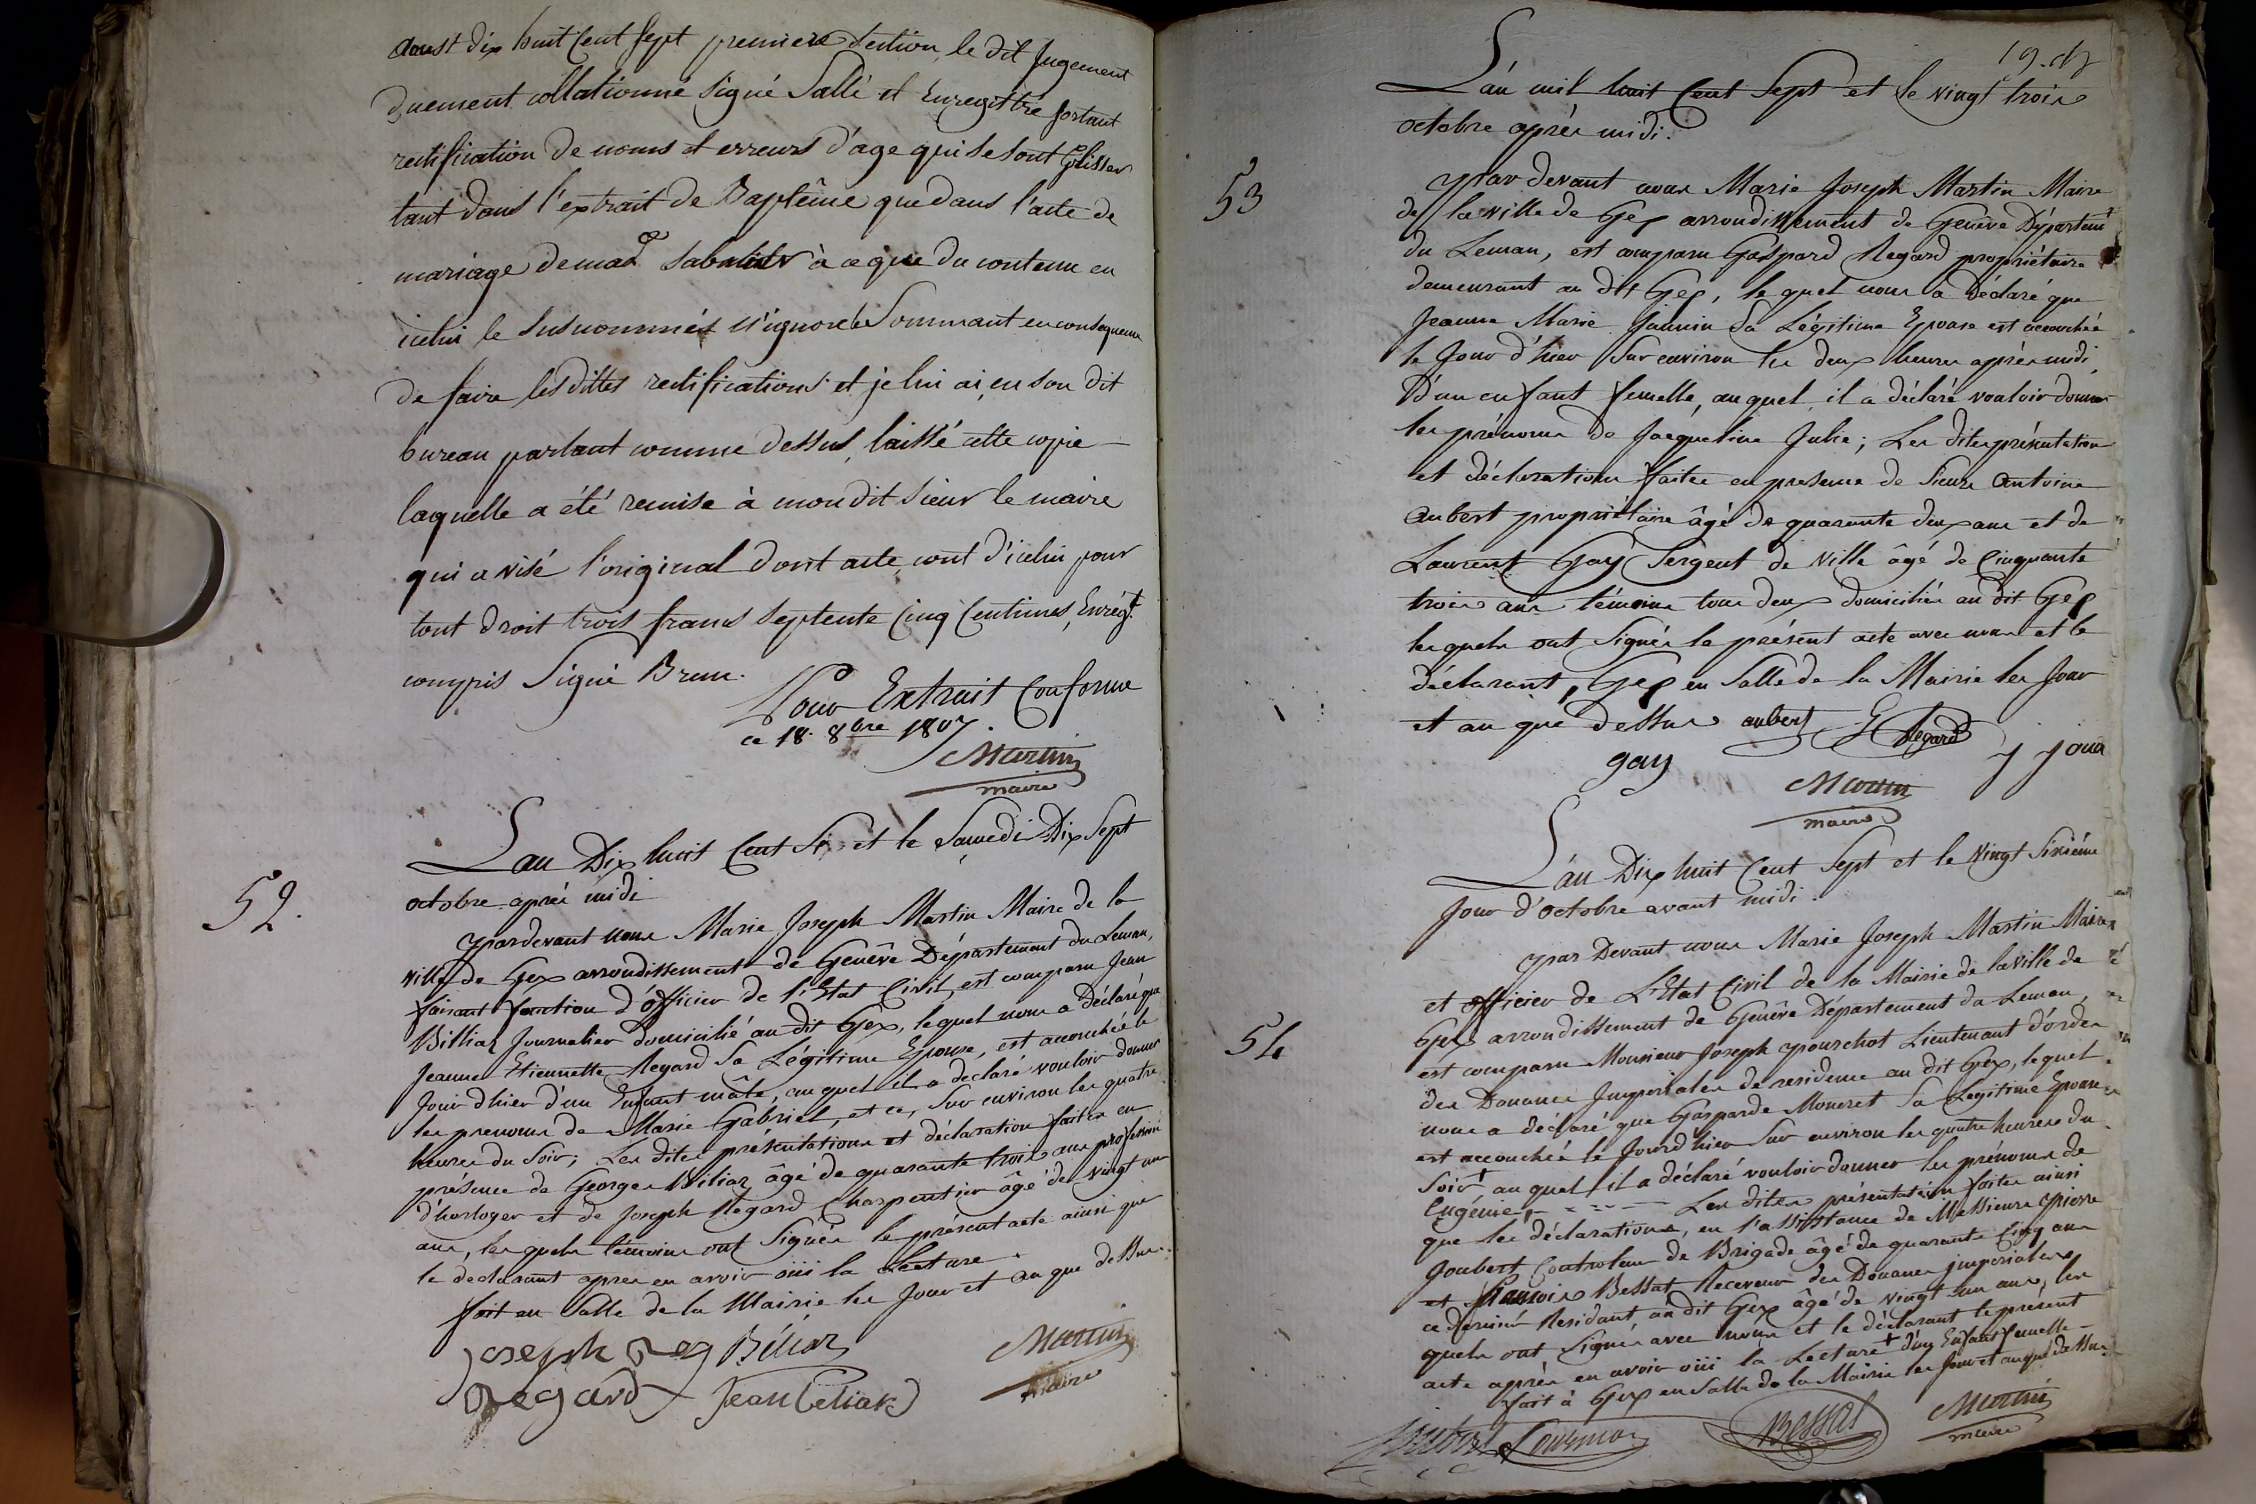 aoust dix huit Cent Sept premiere Section, le dit Jugement
duement collationné signé Sallé et Enregistré portant
rectification de noms et erreurs d'age qui se sont Glissés
tant dans l'extrait de Baptême que dans l'acte de
mariage de mad.e à ce que du contenu en
icelui le susnommés n'ignore le Sommant en consequence
de faire les dittes rectifications et je lui ai, en son dit
bureau parlant comme dessus, laissé cette copie —
laquelle a été remise à mon dit sieur le maire
qui a visé l'original dont acte, cout d'icelui pour
tout droit trois francs septente Cinq Centimes, Enrég.t
compris Signé Brun.
Pour Extrait Conforme
ce 18. 8bre 1807.
Martin
maire
52.
L'an Dix huit Cent Si et le Samedi Dix Sept
octobre aprés midi
pardevant nous Marie Joseph Martin Maire de la
ville de Gex arrondissement de Genêve Département du Leman,
faisant fonction d'officier de l'Etat Civil, est comparu Jean
Billiaz Journalier domicilié au dit Gex, lequel nous a déclaré que
Jeanne Etiennette Regard Sa Légitime Epouse, est accouchée le
Jour d'hier d'un Enfant mâle, auquel il a déclaré vouloir donner
les prenoms de Marie Gabriel, et ce, Sur environ les quatre
heures du Soir; Les dites présentations et déclaration faites en
présence de George Biliaz âgé de quarante trois ans profession
d'horloger et de Joseph Regard Charpentier âgé de vingt un
ans, les quels témoins ont Signés le présent acte ainsi que
le declarant apres en avoir oüi la Lecture.
fait en Salle de la Mairie les Jour et an que dessus.
Joseph Reg Biliaz
Regard Jean Biliaz
Martin
maire
19.
L'an mil huit Cent Sept et le vingt trois
octobre après midi.
53
par devant nous Marie Joseph Martin Maire
de la ville de Gex arrondissement de Genêve Départem.t
du Leman, est comparu Gaspard Regard propriétaire
demeurant au dit Gex, le quel nous a déclaré que
Jeanne Marie Jannin Sa Légitime Epouse est accouchée
le Jour d'hier Sur environ les deux heures après midi,
D'un enfant femelle, auquel il a déclaré vouloir donner
les prénoms de Jacqueline Julie; Les dites présentation
et déclarations faites en presence de Sieurs Antoine
Aubert propriétaire âgé de quarante deux ans et de
Laurent Gay Sergent de Ville âgé de Cinquante
trois ans témoins tous deux domiciliés au dit Gex
lesquels ont Signés le présent acte avec nous et le
déclarant, Gex en Salle de la Mairie les Jour
et an que dessus aubert G Regard
gay
Martin
maire
L'an Dix huit Cent Sept et le Vingt Sixiéme
Jour d'octobre avant midi.
54
par Devant nous Marie Joseph Martin Maire
et officier de L'Etat Civil de la Mairie de la ville de
Gex arrondissement de Genêve Département du Leman,
est comparu Monsieur Joseph pourchot Lieutenant d'ordre
des Douanes Imperiales de residence au dit Gex, lequel
nous a déclaré que Gasparde Moneret Sa Légitime Epouse
est accouchée le Jour d'hier Sur environ les quatre heures du
Soir + au quel il a déclaré vouloir donner les prénoms de
Eugénie, Les dites présentation faites ainsi
que les déclarations, en l'assistance de Messieurs pierre
Joubert Controleur de Brigade âgé de quarante Cinq ans
et françois Bessat Receveur des Douanes imperiales
ce dernier Residant au dit Gex âgé de vingt un ans, les
quels ont Signés avec nous et le déclarant le présent
acte après en avoir oüi la Lecture + d'un Enfant femelle —
fait à Gex en Salle de la Mairie les Jour et an que dessus
Joubert Bessat Martin
maire